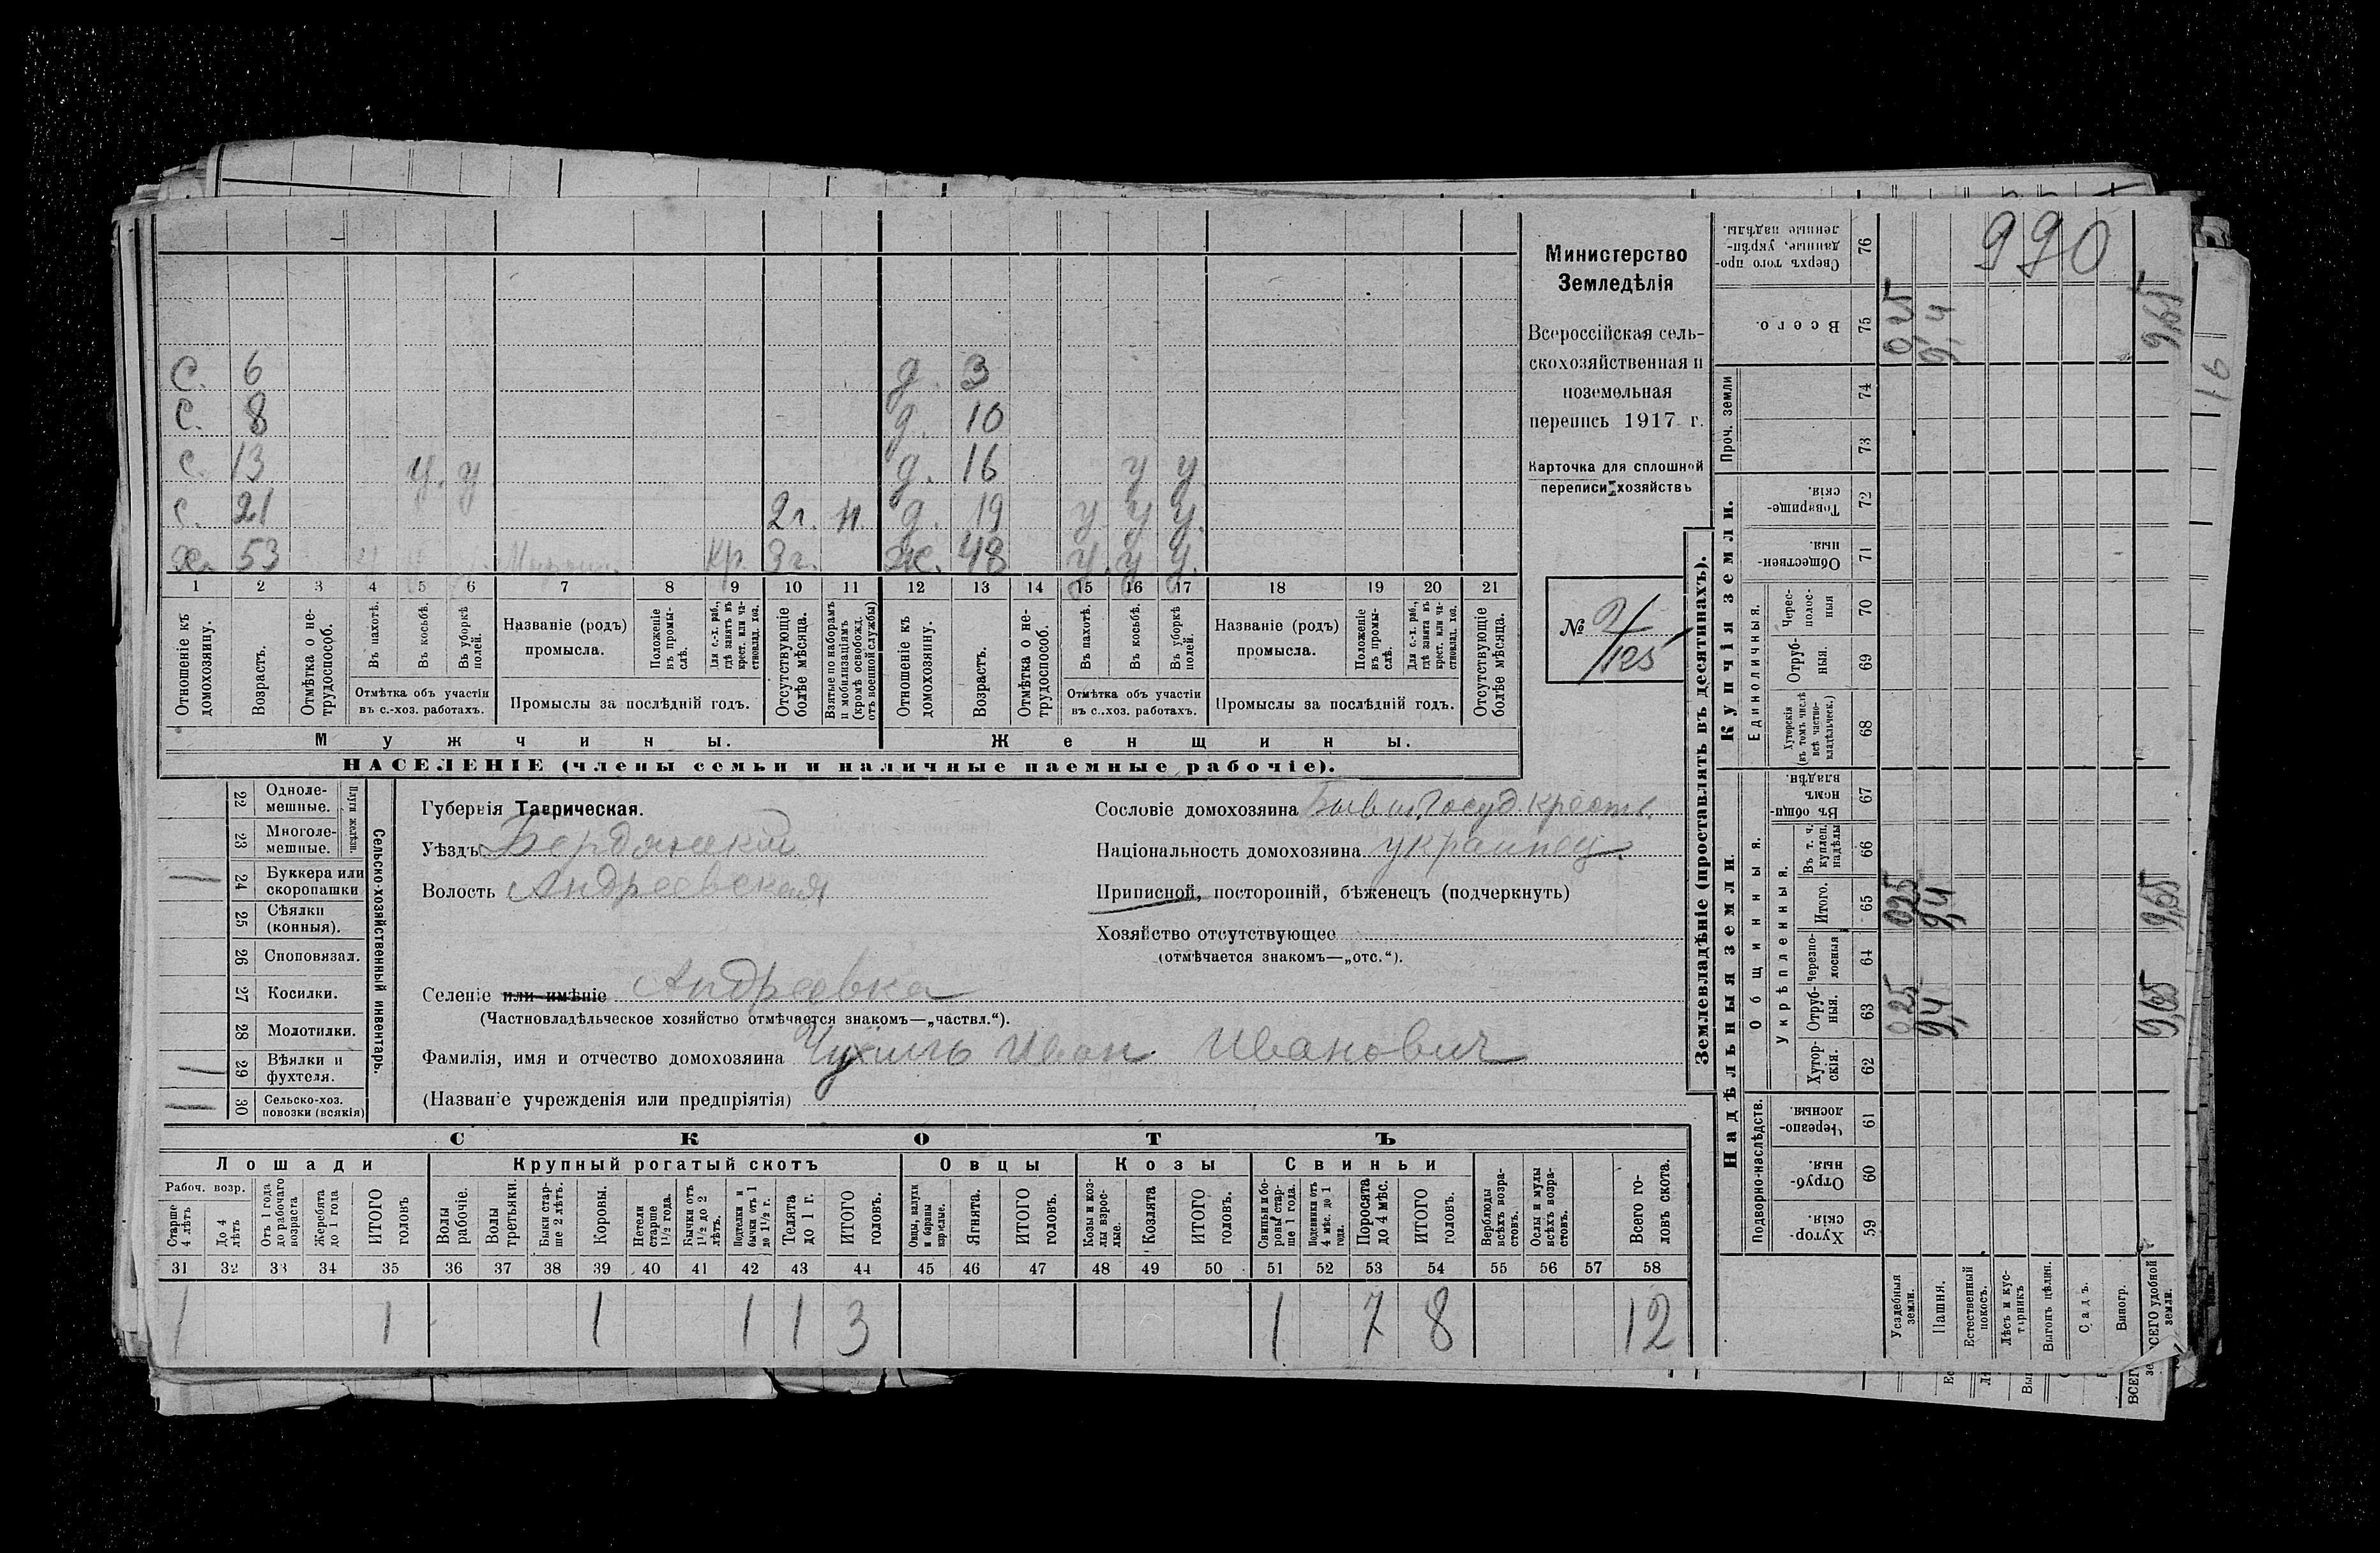 990
16
С. 6 д. 3
С. 8 д. 10
с. 13 у. у д. 16 у у
с. 21 2 г. н. д. 19 у. у у.
х. 53 Кр. 3 г. ж. 48 у. у у.
1 2 3 4 5 6 7 8 9 10 11 12 13 14 15 16 17 18 19 20 21
Отношеніе къ домохозяину.
Возрастъ.
Отмѣтка о не-трудоспособ.
Въ пахотѣ.
Въ косьбѣ.
Въ уборкѣ полей.
Отмѣтка объ участіи
въ с.-хоз. работахъ.
Названіе (родъ)
промысла.
Положеніе въ промы-слѣ.
Для с.-х. раб., гдѣ занятъ въ крест. или ча-стновлад. хоз.
Промыслы за послѣдній годъ.
Отсутствующіе болѣе мѣсяца.
Взятые по наборамъ и мобилизаціямъ (кромѣ освобожд. отъ военной службы)
Отношеніе къ домохозяину.
Возрастъ.
Отмѣтка о не-трудоспособ.
Въ пахотѣ.
Въ косьбѣ.
Въ уборкѣ полей.
Отмѣтка объ участіи
въ с.-хоз. работахъ.
Названіе (родъ)
промысла.
Положеніе въ промы-слѣ.
Для с.-х. раб., гдѣ занята въ крест. или ча-стновлад. хоз.
Промыслы за послѣдній годъ.
Отсутствующіе болѣе мѣсяца.
Мужчины. Женщины.
НАСЕЛЕНІЕ (члены семьи и наличные наемные рабочіе).
Министерство
Земледѣлія
Всероссійская сель-
скохозяйственная и
поземельная
перепись 1917 г.
Карточка для сплошной
переписи хозяйствъ
№ 2/125
22 Одноле-мешные.
23 Многоле-мешные.
Плуги желѣзн.
24 Буккера или скоропашки
25 Сѣялки (конныя).
26 Сноповязал.
27 Косилки.
28 Молотилки.
29 Вѣялки и фухтеля.
30 Сельско-хоз. повозки (всякія)
Сельско-хозяйственный инвентарь.
Губернія Таврическая.
Уѣздъ Бердянский
Волость Андреевская
Селеніе или имѣніе Андреевка
(Частновладѣльческое хозяйство отмѣчается знакомъ—„частвл.“).
Фамилія, имя и отчество домохозяина Иван Иванович
(Названіе учрежденія или предпріятія)
Сословіе домохозяина Бывш. Госуд. кресть.
Національность домохозяина украинец.
Приписной, посторонній, бѣженецъ (подчеркнуть)
Хозяйство отсутствующее
(отмѣчается знакомъ—„отс.“).
СКОТЪ
Лошади Крупный рогатый скотъ Овцы Козы Свиньи
Рабоч. возр.
Старше 4 лѣтъ
До 4 лѣтъ
Отъ 1 года до рабочаго возраста
Жеребята до 1 года
ИТОГО головъ
Волы рабочіе.
Волы третьяки.
Быки стар-ше 2 лѣтъ.
Коровы.
Нетели старше 1 1/2 года.
Бычки отъ 1 1/2 до 2 лѣтъ.
Подтелки и бычки отъ 1 до 1 1/2 г.
Телята до 1 г.
ИТОГО головъ.
Овцы, валухи и бараны взрослые.
Ягнята.
ИТОГО головъ.
Козы и коз-лы взрос-лые.
Козлята
ИТОГО головъ.
Свиньи и бо-ровы стар-ше 1 года.
Подсвинки отъ 4 мѣс. до 1 года.
Поросята до 4 мѣс.
ИТОГО головъ.
Верблюды всѣхъ возра-стовъ.
Ослы и мулы всѣхъ возра-стовъ.
Всего го-ловъ скота.
31 32 33 34 35 36 37 38 39 40 41 42 43 44 45 46 47 48 49 50 51 52 53 54 55 56 57 58
1 1 1 1 1 3 1 7 8 12
Землевладѣніе (проставлять въ десятинахъ).
Надѣльныя земли. Купчія земли. Проч. земли
Подворно-наслѣдств.
Общинныя.
Укрѣпленныя.
Единоличныя.
Хутор-скія. 59
Отруб-ныя. 60
Черезпо-лосныя. 61
Хутор-скія. 62
Отруб-ныя. 63
Черезпо-лосныя 64
Итого. 65
Въ т. ч. куплен. надѣлы 66
Въ общи-номъ владѣн. 67
Хуторскія (въ томъ числѣ всѣ частно-владѣльческ.) 68
Отруб-ныя. 69
Черес-полос-ныя 70
Обществен-ныя. 71
Товарище-скія. 72
73
74
Всего. 75
Сверхъ того про-данные, укрѣп-ленные надѣлы. 76
Усадебныя земли. 0,25 0,25 0,25
Пашня. 9,4 9,4 9,4
Естественный покосъ.
Лѣсъ и кус-тарникъ
Выгонъ цѣлин.
Садъ.
Виногр.
ВСЕГО удобной земли. 9,65 9,65 9,65